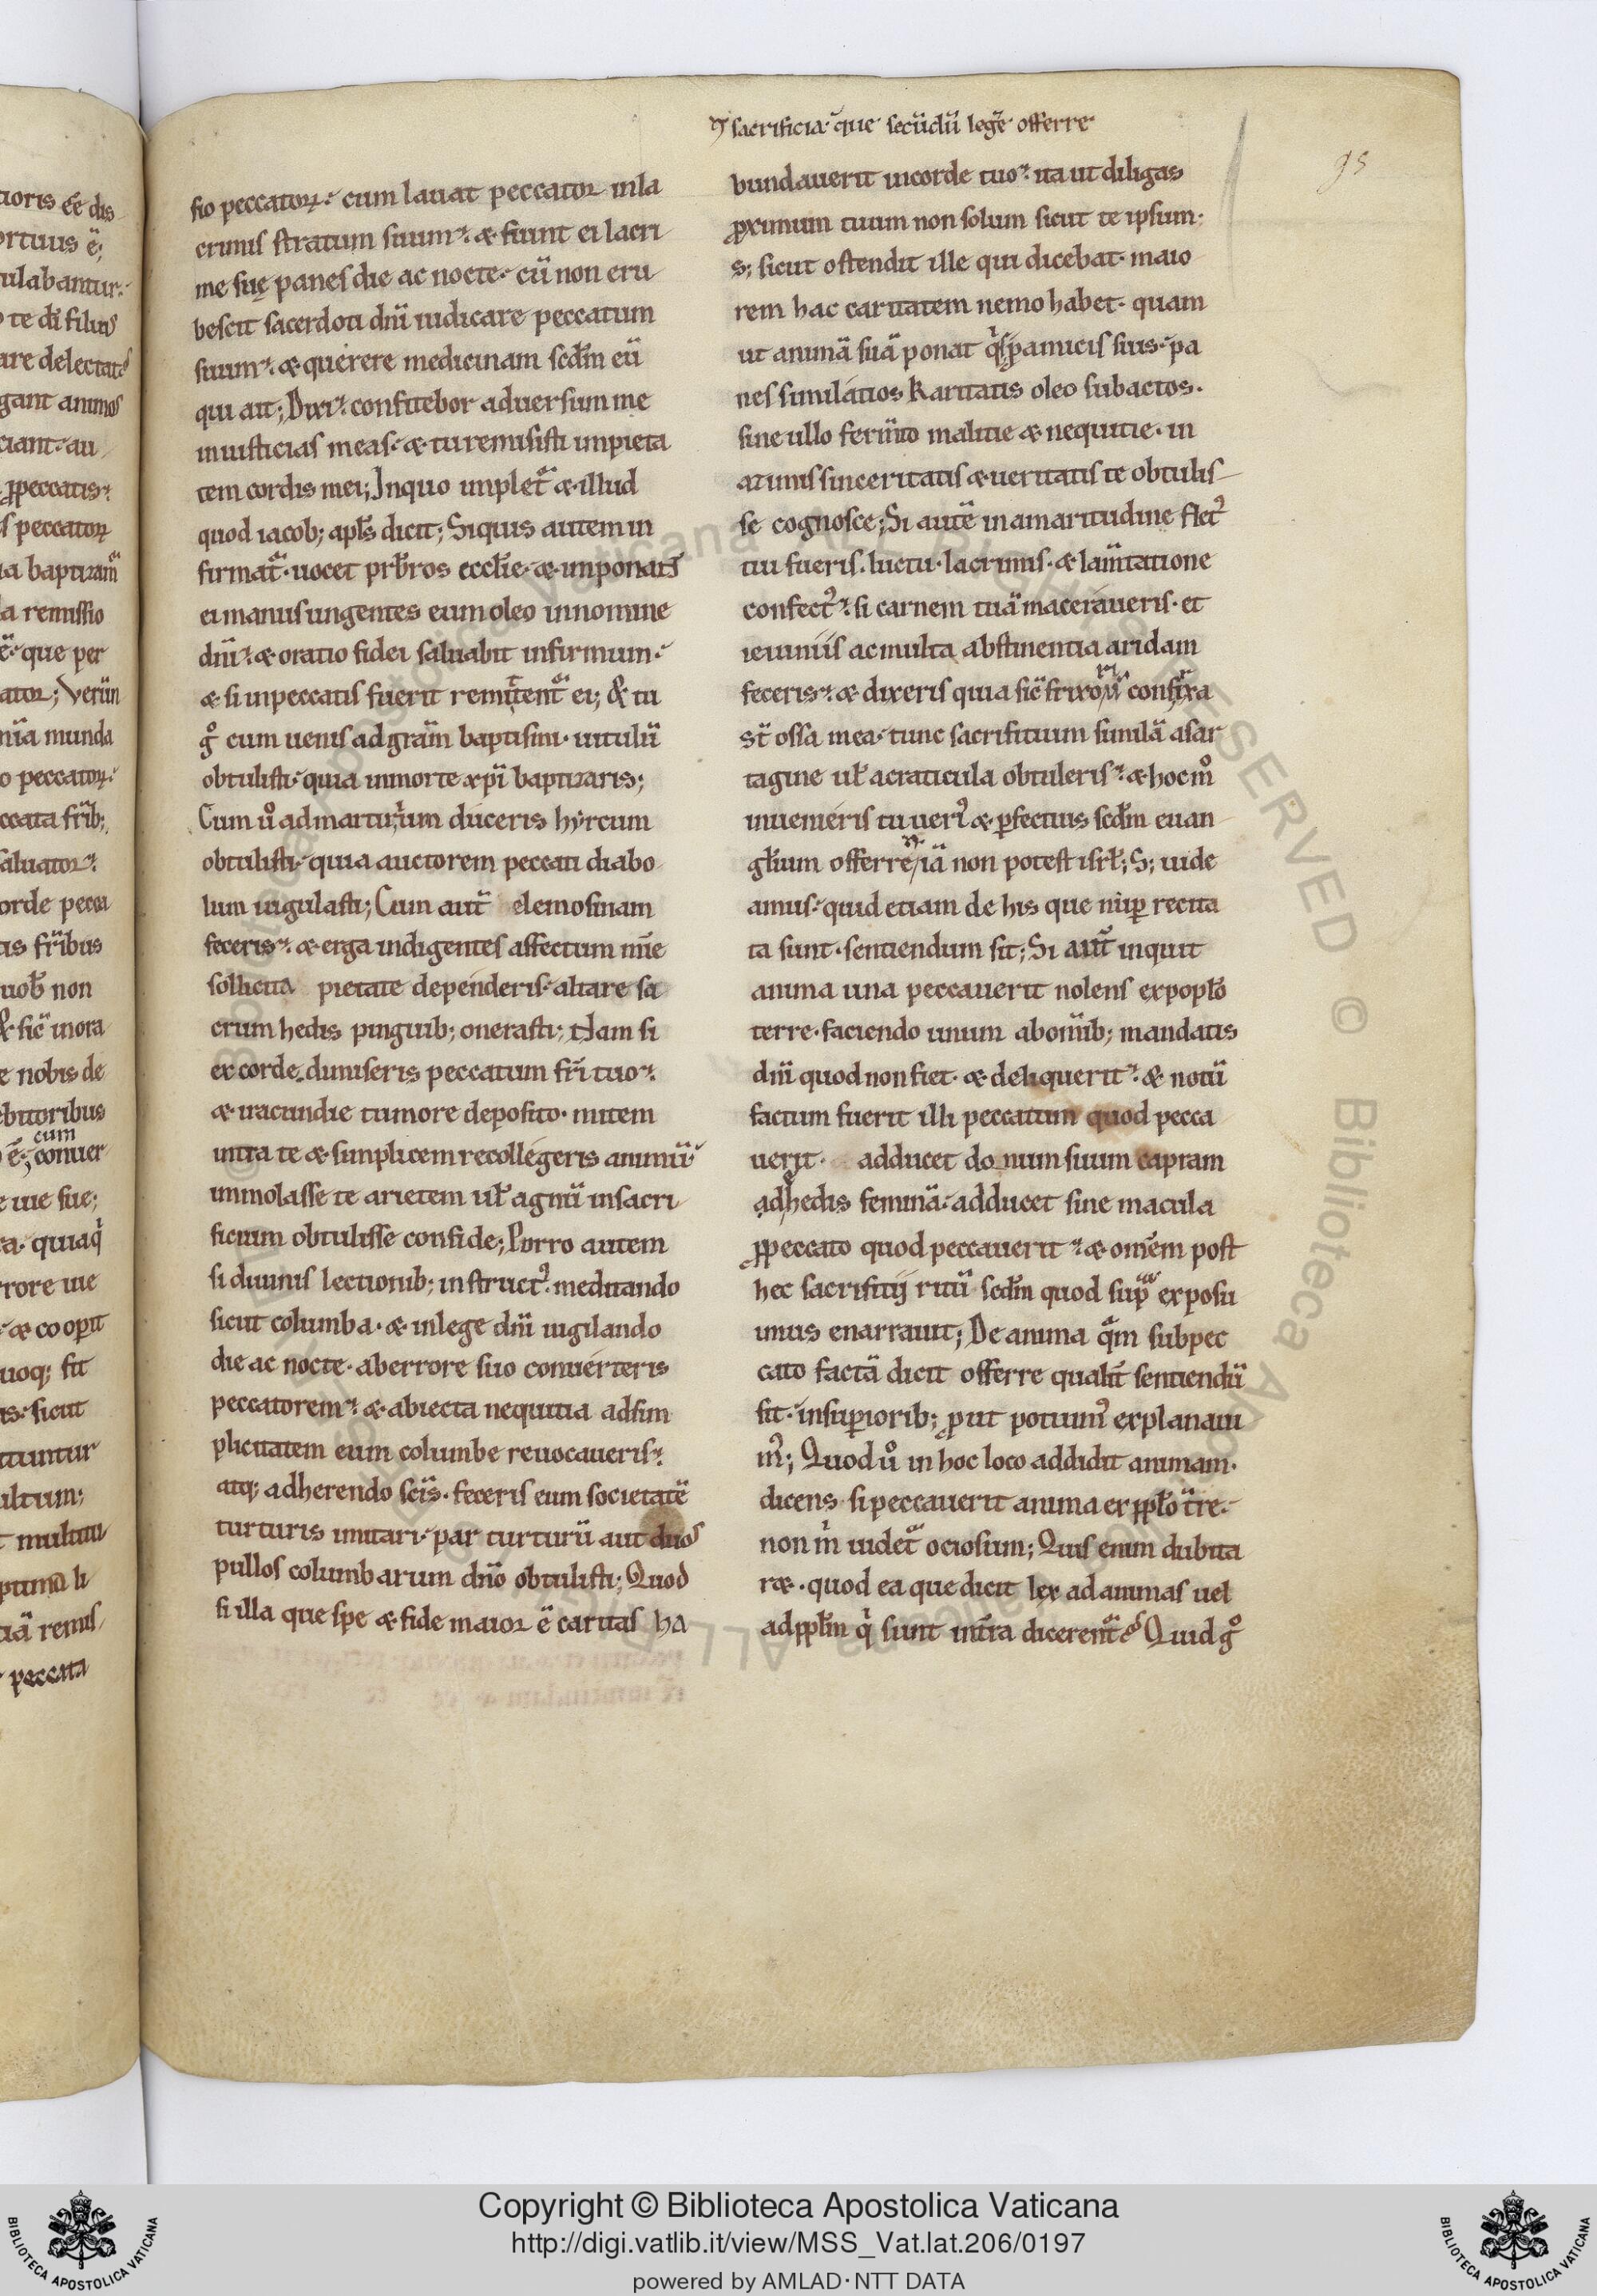 fio peccatoꝝ. cum lauat peccator inla
crimis stratum suum. & fiunt ei lacri
me suę panes die ac nocte. cū non eru
bescit sacerdoti dn̄i iudicare peccatum
suum. & querere medicinam scdm̄ eū
qui ait; Dixi. confitebor aduersum me
iniusticias meas. & tu remisisti impieta
tem cordis mei; Inquo implet̄ & illud
quod iacob; apłs dicit; Siquis autem in
firmat̄. uocet prb̄ros eccłie. & imponant
ei manus ungentes eum oleo innomine
dn̄i. & oratio fidei saluabit infirmum.
& si inpeccatis fuerit remittent̄ ei; & tu
gͦ cum uenis ad grām baptismi. uitulū
obtulisti. quia inmorte xp̄i baptizaris;
Cum uͦ ad martirium duceris hyrcum
obtulisti. quia auctorem peccati diabo
lum iugulasti; Cum aut̄ elemosinam
feceris. & erga indigentes affectum mīe
sollicita pietate dependeris. altare sa
crum hedis pinguib; onerasti; Nam si
ex corde dimiseris peccatum fr̄i tuo.
& iracundie tumore deposito. mitem
intra te & simplicem recollegeris animū
immolasse te arietem uł agnū insacri
ficium obtulisse confide; Porro autem
si diuinis lectionib; instruct᾽. meditando
sicut columba. & inlege dn̄i uigilando
die ac nocte. aberrore suo conuerteris
peccatorem. & abiecta nequitia adsim
plicitatem eum columbe reuocaueris.
atq; adherendo sc̄is. feceris eum societatē
turturis imitari. par turturū aut duos
pullos columbarum dn̄o obtulisti; Quod
si illa que spe & fide maior ē caritas ha
sacrificia. que secūdū legē offerre
bundauerit incorde tuo. ita ut diligas
ꝓximum tuum non solum sicut te ipsum.
s; sicut ostendit ille qui dicebat. maio
rem hac caritatem nemo habet. quam
ut animā suā ponat qͥs ꝓ amicis suis. pa
nes similatios karitatis oleo subactos.
sine ullo ferm̄to malitie & nequitie. in
azimis sinceritatis & ueritatis te obtulis
se cognosce; Si autē inamaritudine flet᾽
tui fueris. luctu. lacrimis. & lam̄tatione
confect᾽. si carnem tuā maceraueris. et
ieiuniis ac multa abstinentia aridam
feceris. & dixeris quia sic̄ frixoriū confixa
st̄ ossa mea. tunc sacrifitium similā asar
tagine uł acraticula obtuleris. & hoc mͦ
inuenieris tu ueri᾽ & ꝑfectius scdm̄ euan
głium offerre iā non potest isrł; S; uide
amus. quid etiam de his que nuꝑ recita
ta sunt. sentiendum sit; Si aut̄ inquit
anima una peccauerit nolens expopło
terre. faciendo unum abom̄ib; mandatis
dn̄i quod non fiet. & deliquerit. & notū
factum fuerit illi peccatum quod pecca
uerit. adducet donum suum capram
adhedis feminā. adducet sine macula
ꝓpeccato quod peccauerit. & om̄em post
hec sacrifitij ritū scdm̄ quod supͣ exposu
imus enarrauit; De anima qͣm subpec
cato factā dicit offerre qualit̄ sentiendū
sit. insuꝑiorib; ꝓut potuim᾽ explanaui
m᾽; Quod uͦ in hoc loco addidit animam.
dicens si peccauerit anima expp̄ło t̄re.
non mͥ uidet̄ ociosum; Quis enim dubita
ret. quod ea que dicit lex ad animas uel
adpp̄łm qͥ sunt int̄ra dicerent̄; Quid gͦ
Copyright © Biblioteca Apostolica Vaticana
http://digi.vatlib.it/view/MSS_Vat.lat.206/0197
powered by AMLAD·NTT DATA